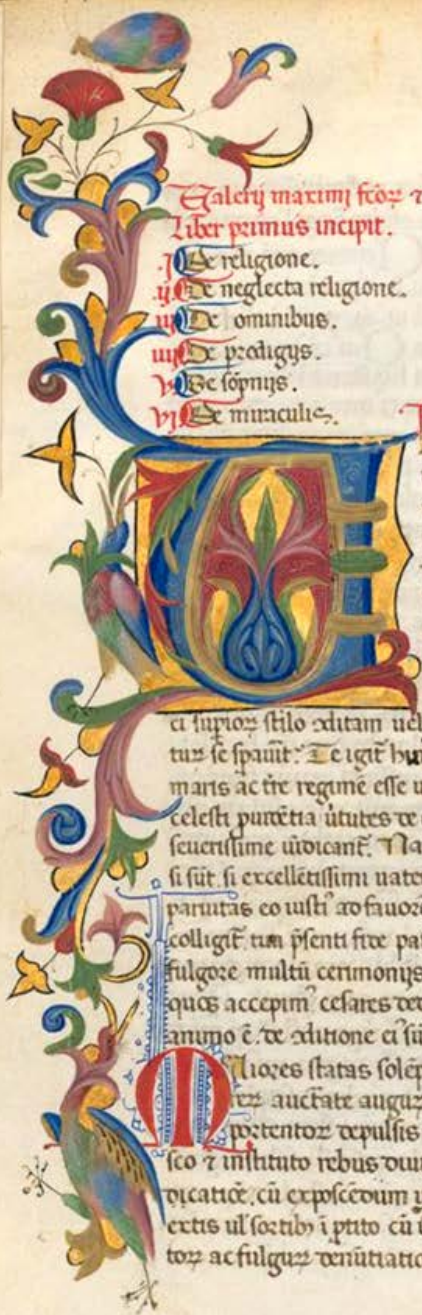 Valerij maximi fcōꝝ ⁊
Liber primus incipit.
.j De religione.
.ij. De neglecta religione.
iij De ominibus.
iiij De prodigijs.
v De sōpnijs.
vj De miraculis.
U
ci supioꝝ stilo ꝯditam uel
tuꝝ se spauit: Te igit̄ hu
maris ac tr̄e regimē esse u
celesti puidētia ūtutes de
seuerissime uīdicant̄. Na
si sūt si excellētissimi uate
paruitas eo iusti᾽ ad fauorē
colligit̄ tua p̄senti fide pa
fulgore multū cerimonijs
quos accepim᾽ cesares ded
animo ē. de ꝯditione ei᾽ sū
Maiores statas solēp
teꝝ auctate auguꝝ
portentoꝝ depulsis
sco ⁊ instituto rebus diui
dicatiōe. cū exposcēdum u
extis ul᾽ sortibꝫ ī ptito cū i
toꝝ ac fulguꝝ denūtiatio